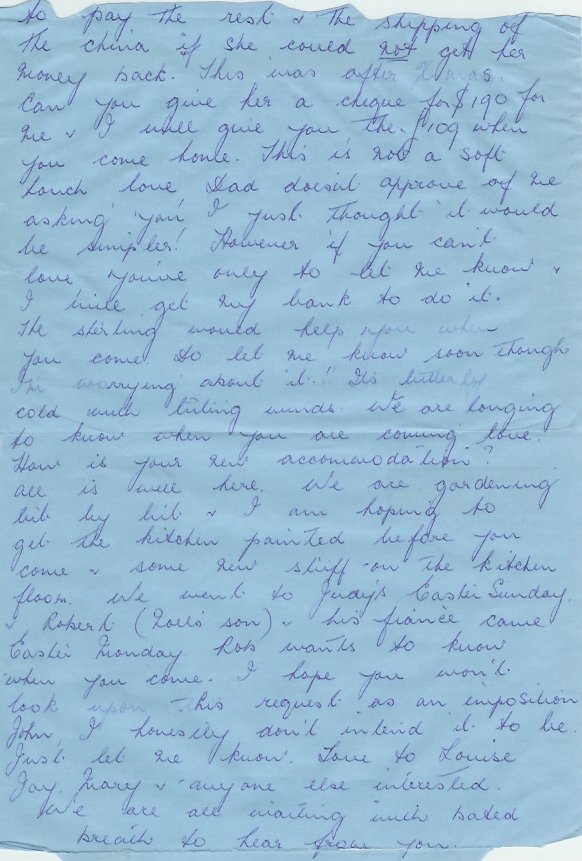 to pay the rest & the shipping of
the china if she could not get her
money back. This was after Xmas.
Can you give her a cheque for $190 for
me & I will give you the £109 when
you come home. This is not a soft
touch love Dad doesn't approve of me
asking you I just thought it would
be simpler! However if you can't
love you've only to let me know &
I will get my bank to do it.
The sterling would help you when
you come so let me know soon though
I'm worrying about it!! Its bitterly
cold with biting winds. We are longing
to know when you are coming love.
How is your new accommodation?
all is well here. We are gardening
bit by bit & I am hoping to
get the kitchen painted before you
come & some new stuff on the kitchen
floor. We went to Judy's Easter Sunday.
& Robert (Zoll's son) & his fiancé came
Easter Monday. Rob wants to know
when you come. I hope you won't
look upon this request as an imposition
John, I honestly don't intend it to be.
Just let me know. Love to Louise
Jay, Mary & anyone else interested.
We are all waiting with bated
breath to hear from you.